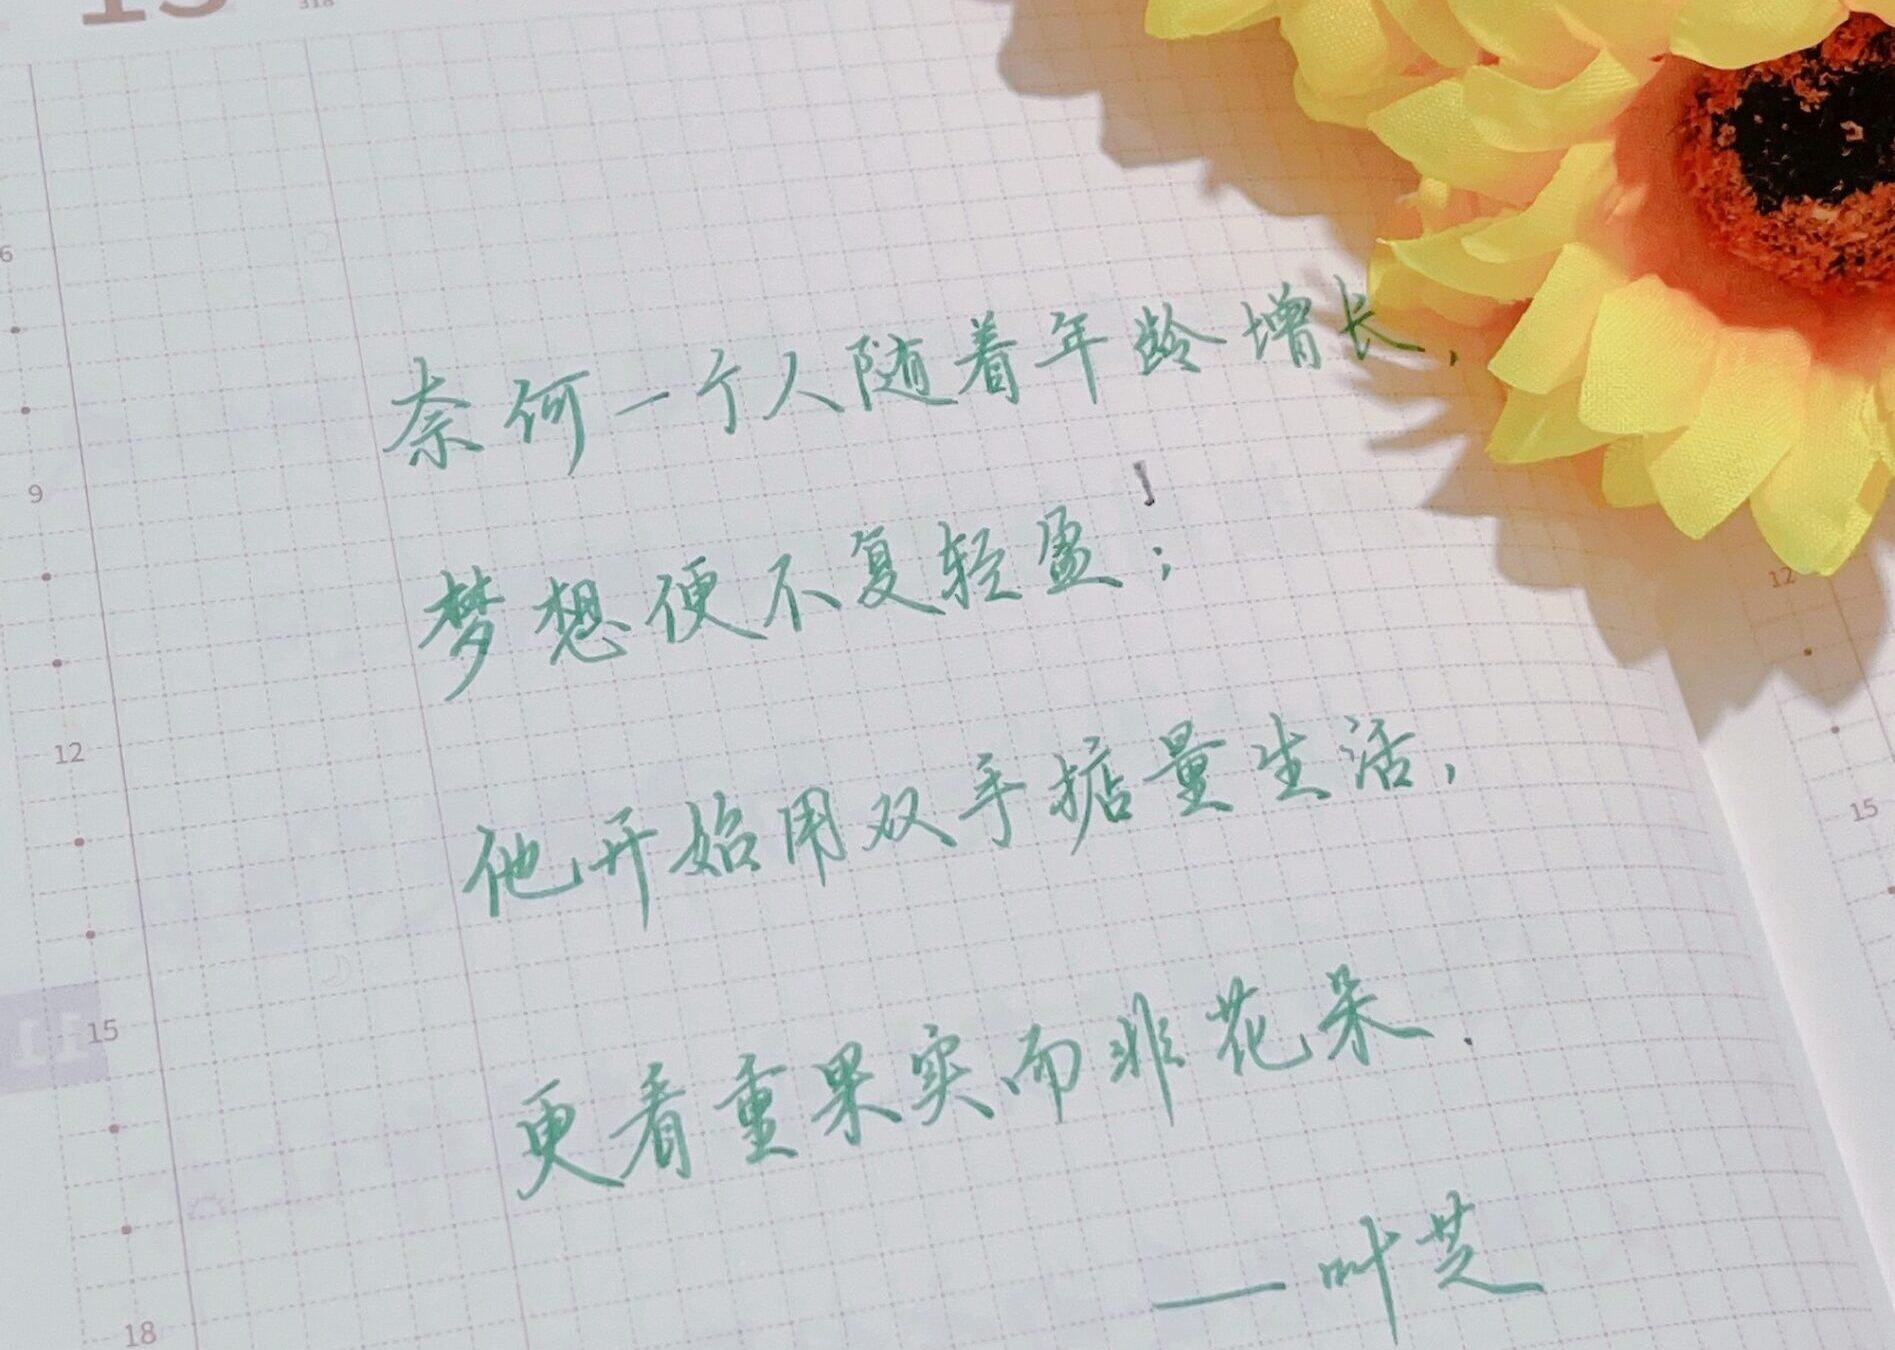 318
奈何一个人随着年龄增长，
梦想便不复轻盈；
他开始用双手掂量生活，
更看重果实而非花朵.
——叶芝
6
9
12
15
18
11
12
15